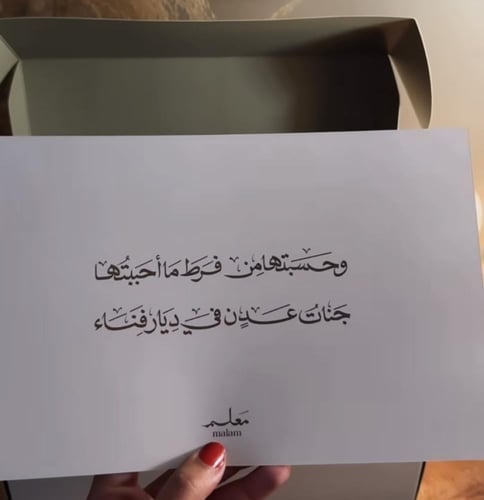 وحَسَبتها مِن فرَط مَا أحَببتُها
جَناتُ عَدنٍ في دِيَار فِنَاء
مَعلم
malam